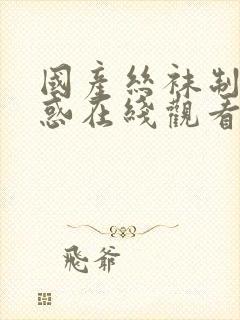 國產絲袜制
惑在綫觀看
飛爺